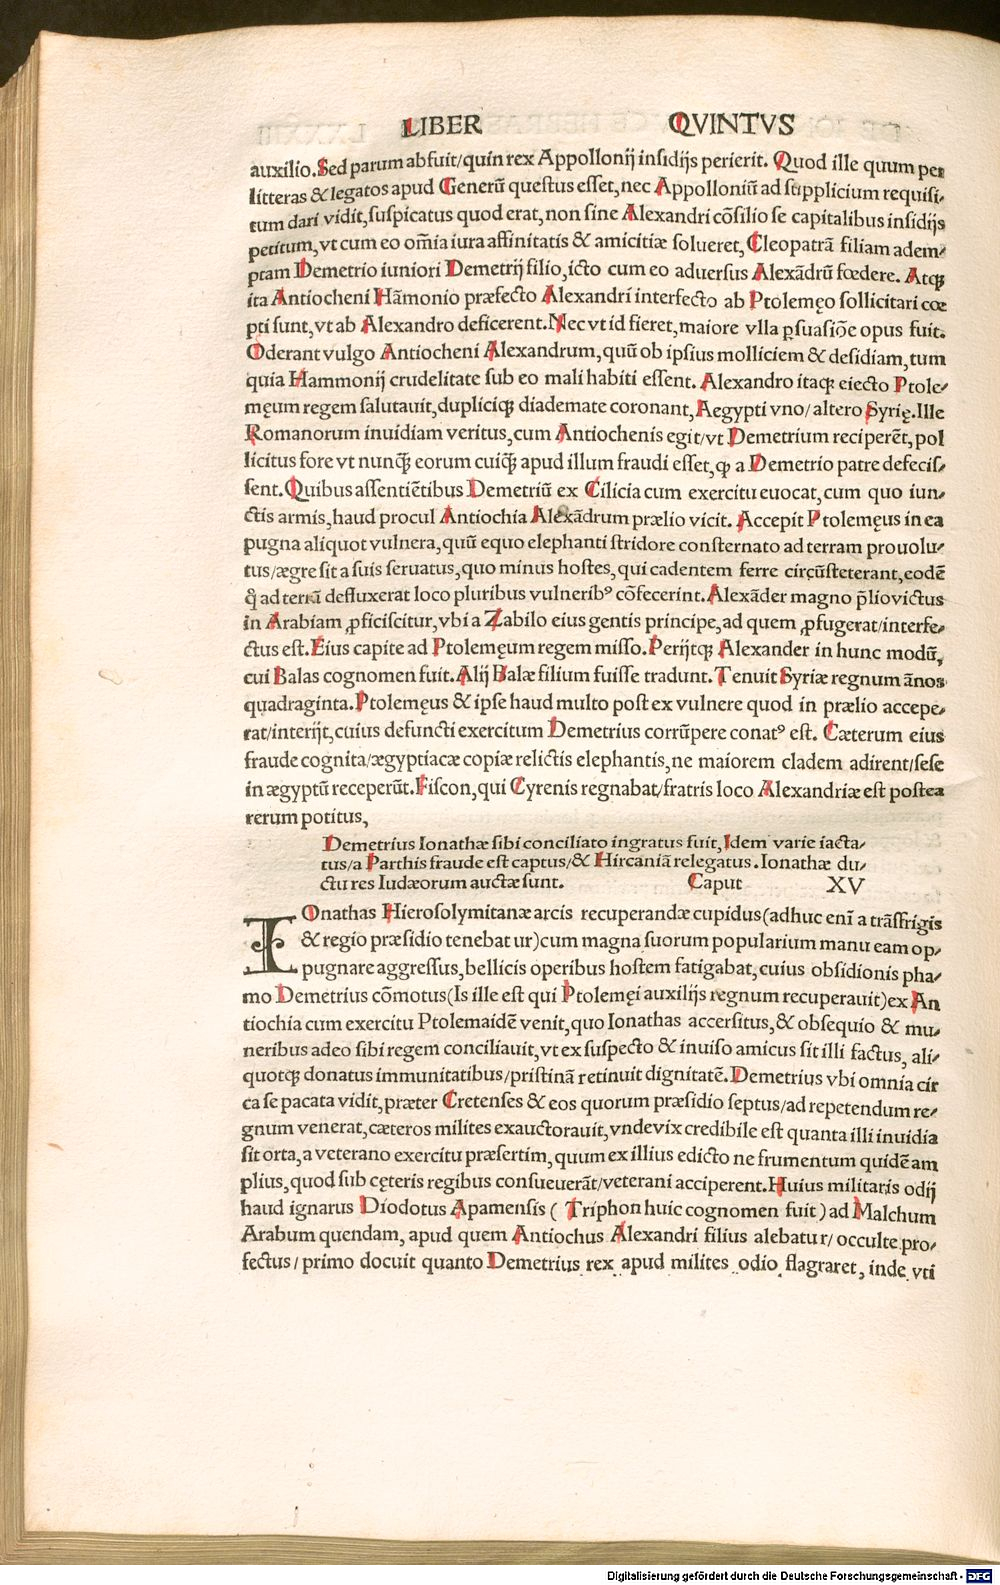 LIBER QVINTVS
auxilio. Sed parum abfuit/quin rex Appollonij insidijs perierit. Quod ille quum per
litteras & legatos apud Generũ questus esset, nec Appolloniũ ad supplicium requisi-
tum dari vidit, suspicatus quod erat, non sine Alexandri cõsilio se capitalibus insidijs
petitum, vt cum eo om̃ia iura affinitatis & amicitiæ solueret, Cleopatrã filiam adem-
ptam Demetrio iuniori Demetrij filio, icto cum eo aduersus Alexãdrũ fœdere. Atqꝫ
ita Antiocheni Hãmonio præfecto Alexandri interfecto ab Ptolemęo sollicitari cœ
pti sunt, vt ab Alexandro deficerent. Nec vt id fieret, maiore vlla ꝑsuasiõe opus fuit.
Oderant vulgo Antiocheni Alexandrum, quũ ob ipsius molliciem & desidiam, tum
quia Hammonij crudelitate sub eo mali habiti essent. Alexandro itaqꝫ eiecto Ptole-
męum regem salutauit, dupliciqꝫ diademate coronant, Aegypti vno/ altero Syrię. Ille
Romanorum inuidiam veritus, cum Antiochenis egit/vt Demetrium reciperẽt, pol
licitus fore vt nunqꝫ̃ eorum cuiqꝫ̃ apud illum fraudi esset, ꝙ a Demetrio patre defecis-
sent. Quibus assentiẽtibus Demetriũ ex Cilicia cum exercitu euocat, cum quo iun-
ctis armis, haud procul Antiochia Alexãdrum prælio vicit. Accepit Ptolemęus in ea
pugna aliquot vulnera, quũ equo elephanti stridore consternato ad terram prouolu-
tus/ægre sit a suis seruatus, quo minus hostes, qui cadentem ferre circũsteterant, eodẽ
q̃ ad terrã defluxerat loco pluribus vulneribꝰ cõfecerint. Alexãder magno p̃lio victus
in Arabiam ꝓficiscitur, vbi a Zabilo eius gentis principe, ad quem ꝓfugerat/interfe-
ctus est. Eius capite ad Ptolemęum regem misso. Perijtqꝫ Alexander in hunc modũ,
cui Balas cognomen fuit. Alij Balæ filium fuisse tradunt. Tenuit Syriæ regnum ãnos
quadraginta. Ptolemęus & ipse haud multo post ex vulnere quod in prælio accepe-
rat/interijt, cuius defuncti exercitum Demetrius corrũpere conatꝰ est. Cæterum eius
fraude cognita/ægyptiacæ copiæ relictis elephantis, ne maiorem cladem adirent/sese
in ægyptũ receperũt. Fiscon, qui Cyrenis regnabat/fratris loco Alexandriæ est postea
rerum potitus,
Demetrius Ionathæ sibi conciliato ingratus fuit, Idem varie iacta-
tus/a Parthis fraude est captus/& Hircaniã relegatus. Ionathæ du-
ctu res Iudæorum auctæ sunt. Caput XV
IOnathas Hierosolymitanæ arcis recuperandæ cupidus(adhuc eni͂ a trãsfrigis
& regio præsidio tenebatur)cum magna suorum popularium manu eam op-
pugnare aggressus, bellicis operibus hostem fatigabat, cuius obsidionis pha-
mo Demetrius cõmotus(Is ille est qui Ptolemęi auxilijs regnum recuperauit)ex An
tiochia cum exercitu Ptolemaidẽ venit, quo Ionathas accersitus, & obsequio & mu-
neribus adeo sibi regem conciliauit, vt ex suspecto & inuiso amicus sit illi factus, ali-
quotqꝫ donatus immunitatibus/pristinã retinuit dignitatẽ. Demetrius vbi omnia cir
ca se pacata vidit, præter Cretenses & eos quorum præsidio septus/ad repetendum re-
gnum venerat, cæteros milites exauctorauit, vnde vix credibile est quanta illi inuidia
sit orta, a veterano exercitu præsertim, quum ex illius edicto ne frumentum quidẽ am
plius, quod sub cęteris regibus consueuerãt/veterani acciperent. Huius militaris odij
haud ignarus Diodotus Apamensis ( Triphon huic cognomen fuit ) ad Malchum
Arabum quendam, apud quem Antiochus Alexandri filius alebatur/ occulte pro-
fectus/ primo docuit quanto Demetrius rex apud milites odio flagraret, inde vti
Digitalisierung gefördert durch die Deutsche Forschungsgemeinschaft - DFG